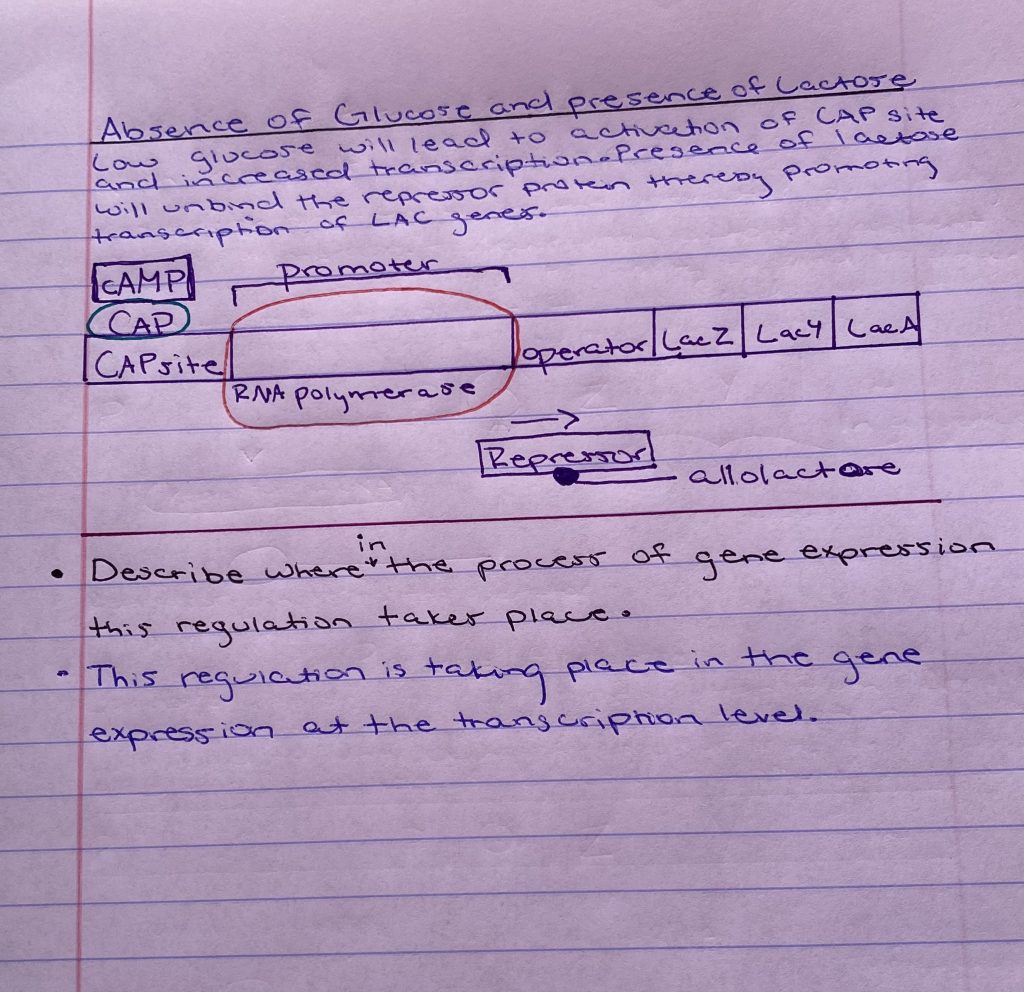 Absence of Glucose and presence of Lactose
Low glucose will lead to activation of CAP site
and increased transcription. Presence of lactose
will unbind the repressor protein thereby promoting
transcription of LAC genes.
cAMP
promoter
CAP
CAPsite
operator
LacZ
LacY
LacA
RNA polymerase
Repressor
allolactose
• Describe where in the process of gene expression
this regulation takes place.
• This regulation is taking place in the gene
expression at the transcription level.